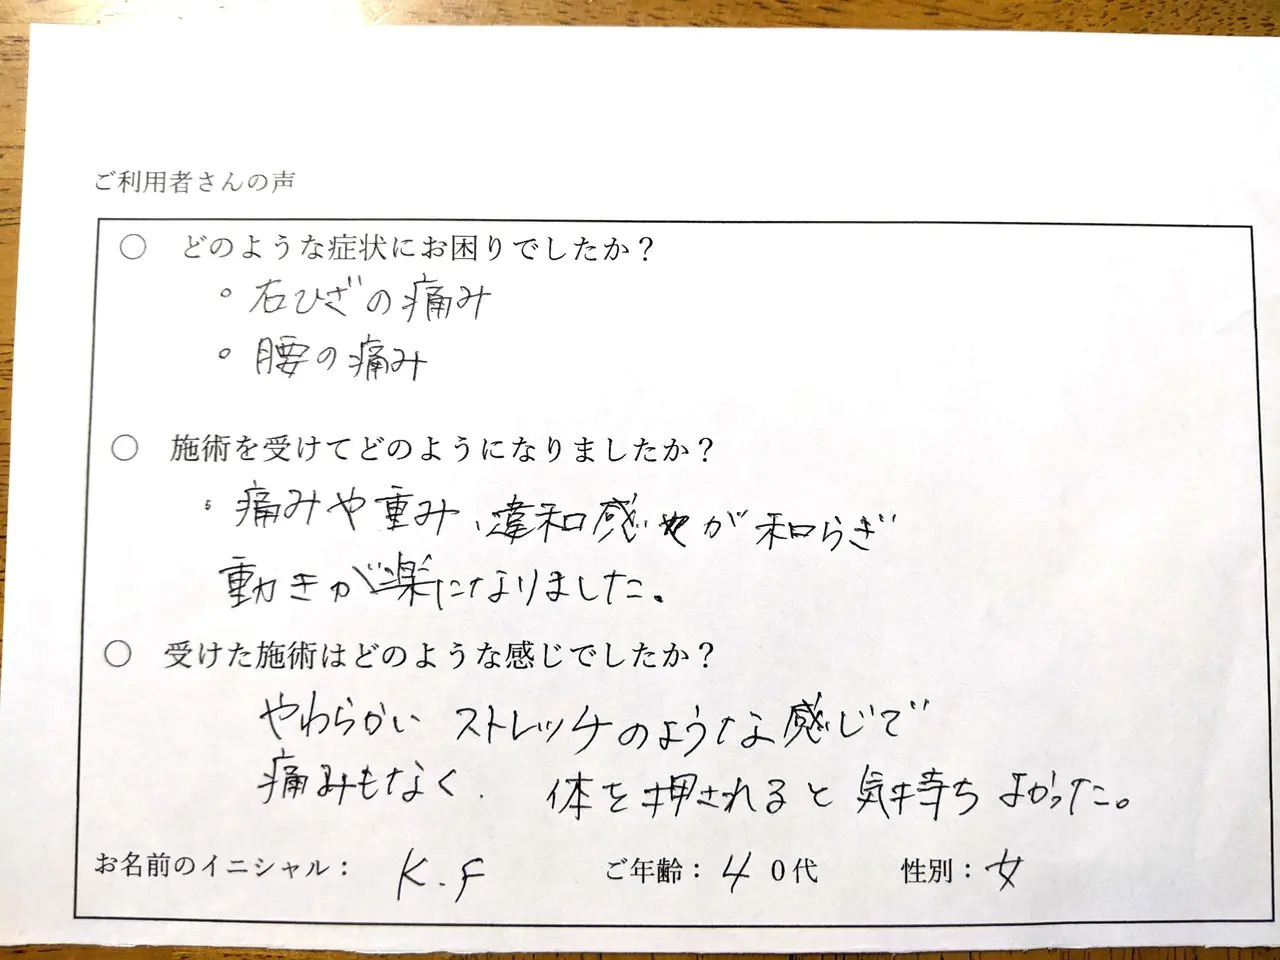 ご利用者さんの声
○ どのような症状にお困りでしたか？
。右ひざの痛み
。腰の痛み
○ 施術を受けてどのようになりましたか？
痛みや重み、違和感がが和らぎ
動きが楽になりました。
○ 受けた施術はどのような感じでしたか？
やわらかい ストレッチのような感じで
痛みもなく、 体を押されると気持ちよかった。
お名前のイニシャル： K.F ご年齢：40代 性別：女